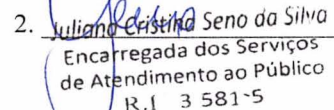 2. Juliana Cristina Seno da Silva
Encarregada dos Serviços
de Atendimento ao Público
R.I 3 581-5